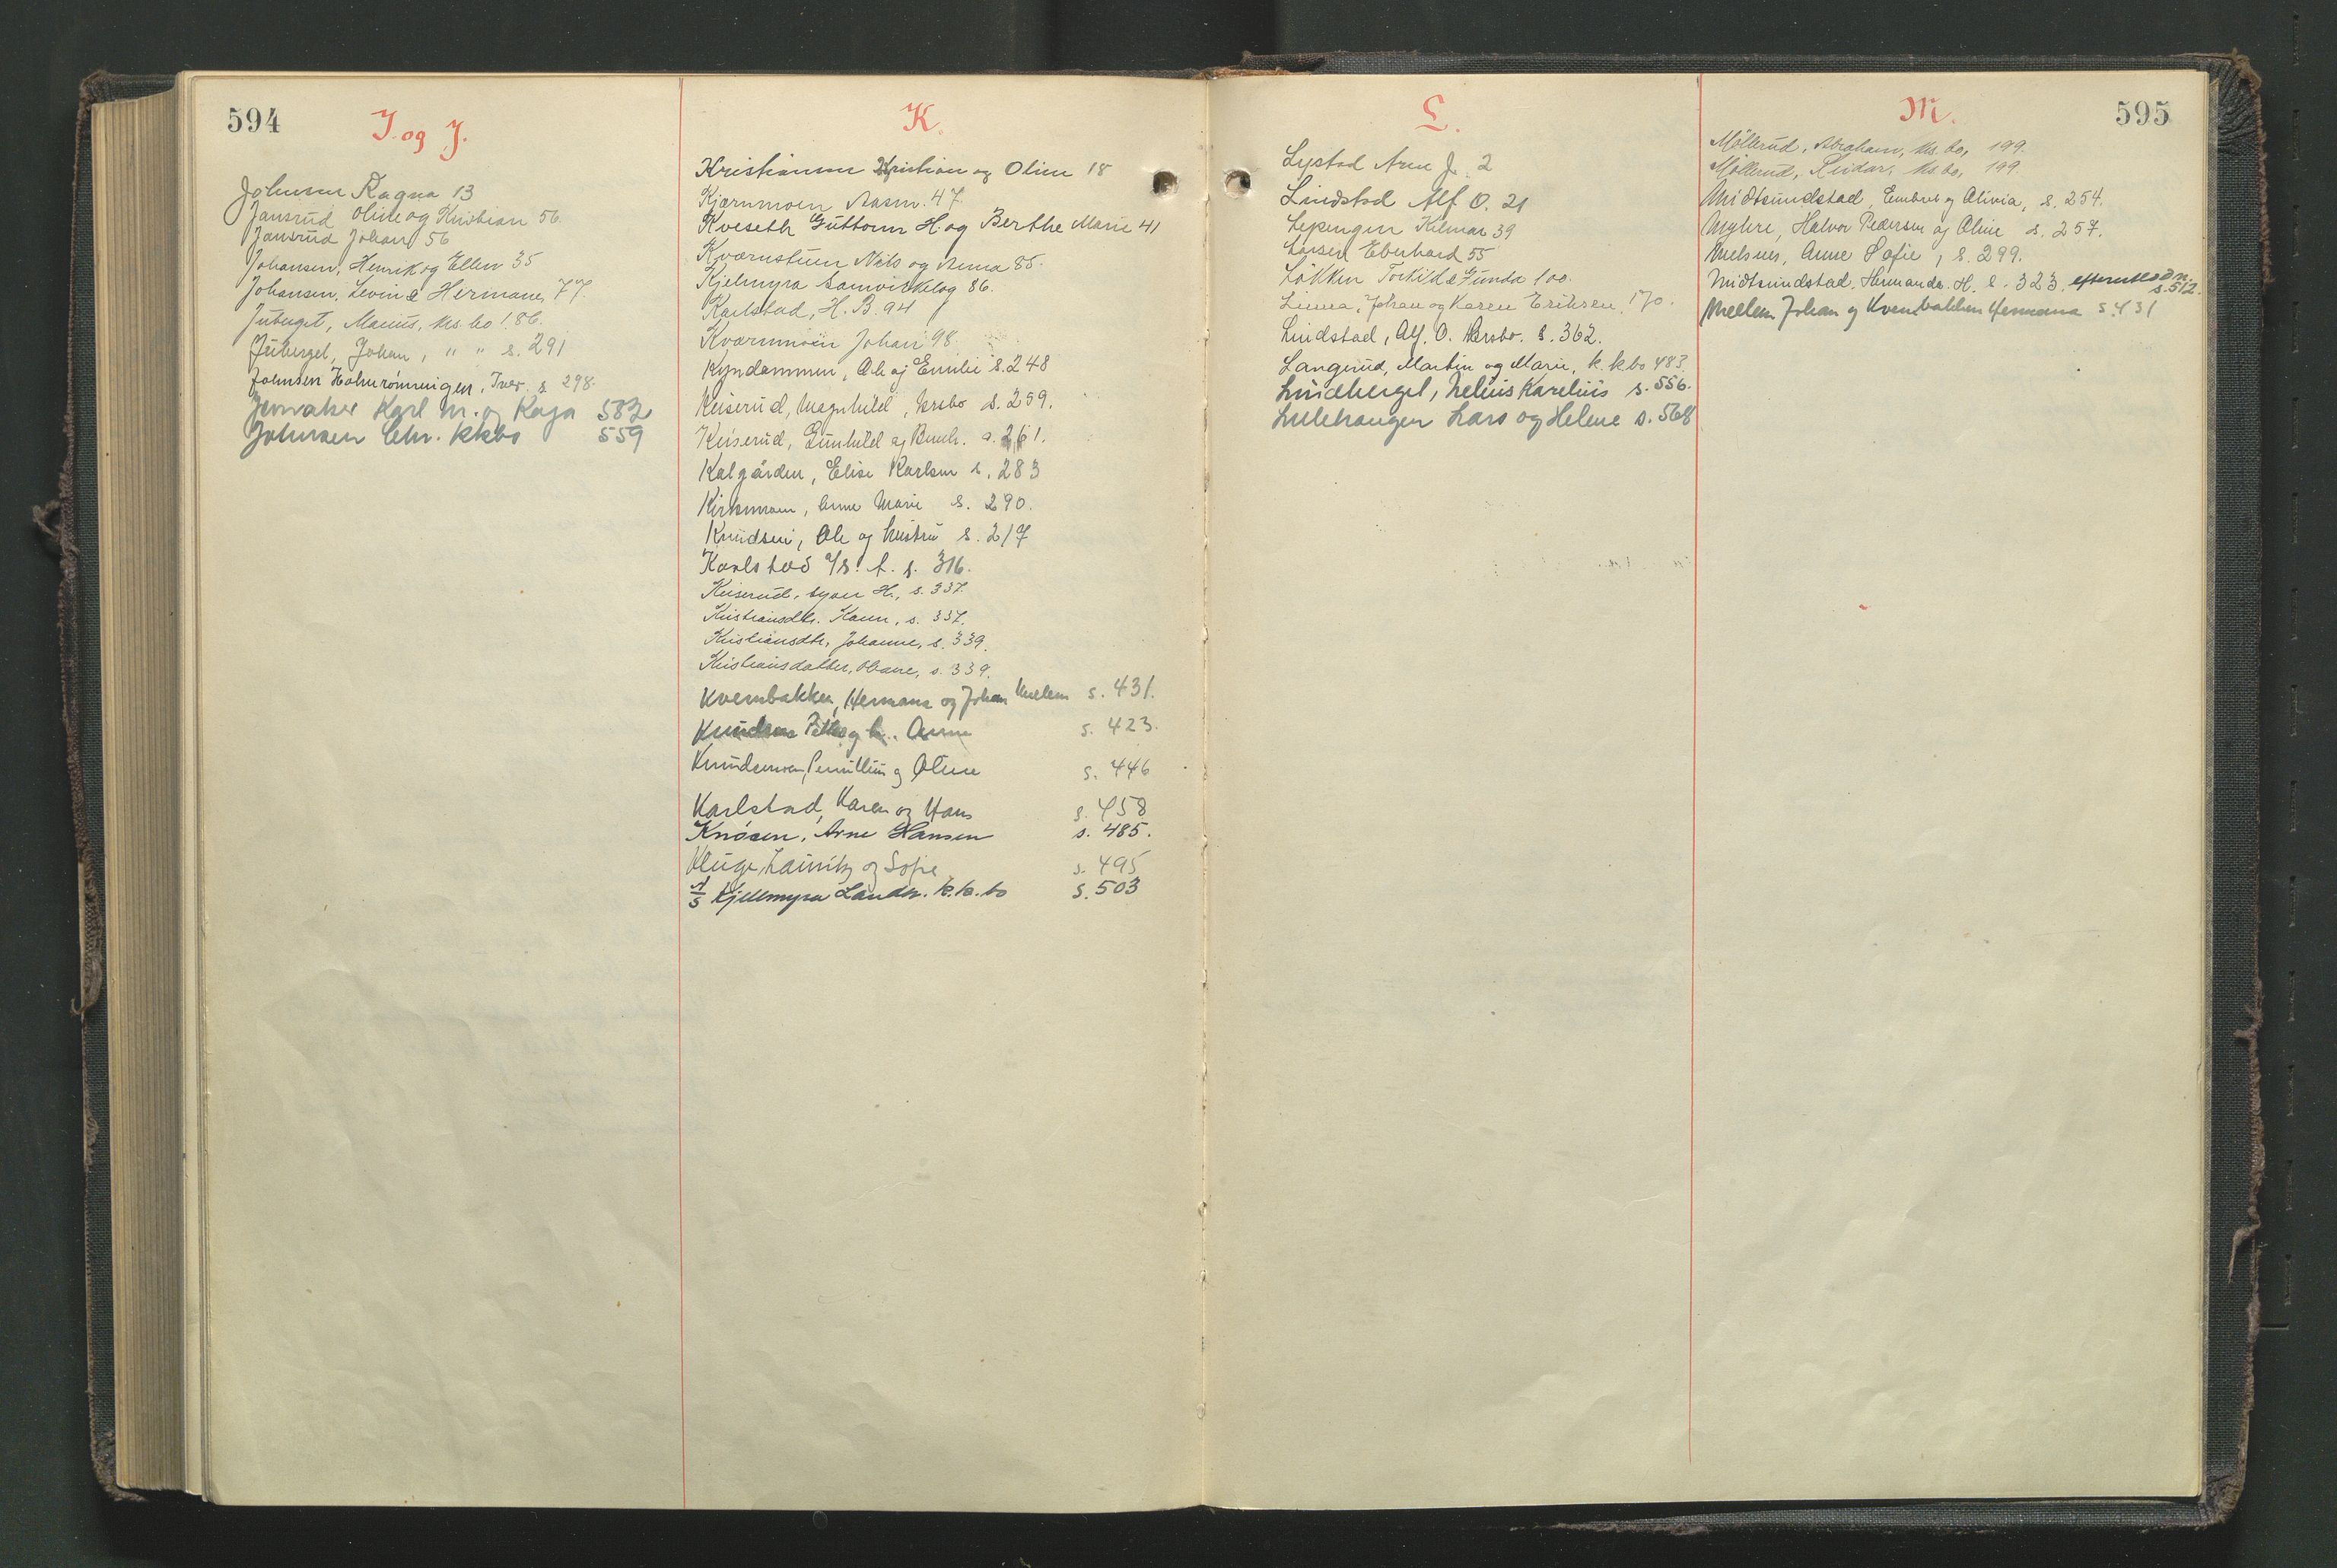 594
I. og J.
Johnsen Ragna 13
Jansrud Oline og Kristian 56
Jansrud Johan 56
Johansen, Henrik og Ellen 35
Johansen, Levin & Hermane, 77.
Juberget, Marius, ks. bo 186.
Juberget, Johan, " " s. 291
Johnsen Holmrønningen, Iver. s 298.
Jernaker Karl M. og Kaja 582
Johnsen Chr. kkbo 559
K.
Kristiansen Kristian og Oline 18
Kjærnmoen Aasm. 47
Kveseth Guttorm H. og Berthe Marie 41
Kværnstuen Nils og Anna 85.
Kjelmyra Samvirkelag 86.
Karlstad, H. B. 94
Kværnmoen Johan 98
Kyndammen, Ole og Emilie s. 248
Keiserud, Magnhild, krsbo s. 259.
Keiserud, Gunhild og s. 261.
Kalgården, Elise Karlsen s. 283
Kirkemoen, Anne Marie s. 290.
Knudsen, Ole og hustru s. 217
Karlstad s. 316.
Keiserud, H., s. 337.
Kristiansdtr. Karen, s. 337.
Kristiansdtr, Johanne, s. 339.
Kristiansdatter, s. 339.
Kvernbakken, Hermana og Johan Mellem s. 431.
Knudsen Petter og Anne s. 423.
og Oline s. 446
Karlstad, Karen og Hans s. 458
Knøsen, Arne Hansen s. 485.
Kluge, og Sofie s. 495
A/S Kjellmyra Landh. k.k.bo s. 503
L.
Lystad Arne J. 2
Lindstad Alf O. 21
Lepengen Hilmar 39
Larsen Eberhard 55
Løkken Torkild & Gunda 100.
Linna, Johan og Karen Eriksen, 170.
Lindstad, Alf. O. krsbo. s. 362.
Langerud, Martin og Marie, k. k. bo 483.
Lindberget, Nelius Karelius s. 556.
Lillehaugen Lars og Helene s. 568
M.
595
Møllerud, Abraham, ks. bo, 199.
Møllerud, Reidar, ks. bo, 199.
Midtsundstad, Embret og Olivia, s. 254.
Myhre, Halvor Pedersen og Oline s. 257.
Melsnes, Anne Sofie, s. 299.
Midtsundstad, Hermandr. H. s. 323.
s. 512.
Mellem Johan og Kvernbakken Hermana s. 431